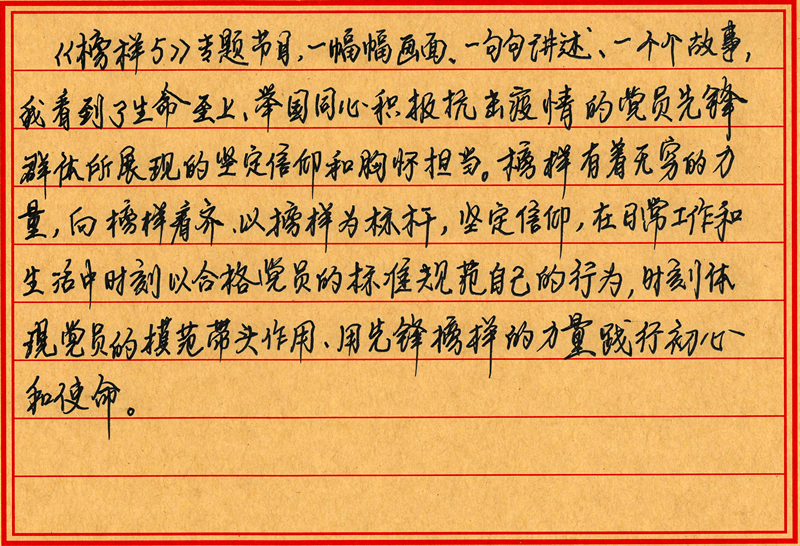 《榜样5》专题节目，一幅幅画面、一句句讲述、一个个故事，
我看到了生命至上、举国同心积极抗击疫情的党员先锋
群体所展现的坚定信仰和胸怀担当。榜样有着无穷的力
量，向榜样看齐、以榜样为标杆，坚定信仰，在日常工作和
生活中时刻以合格党员的标准规范自己的行为，时刻体
现党员的模范带头作用、用先锋榜样的力量践行初心
和使命。